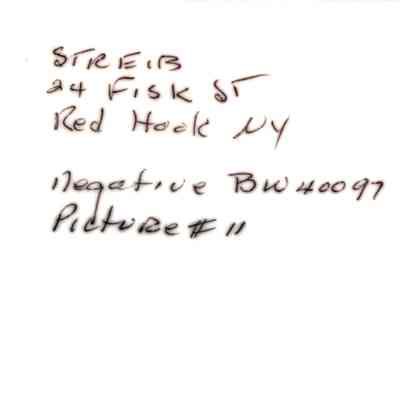 STREIB
24 FISK ST
Red Hook NY
Negative BW40097
Picture # 11